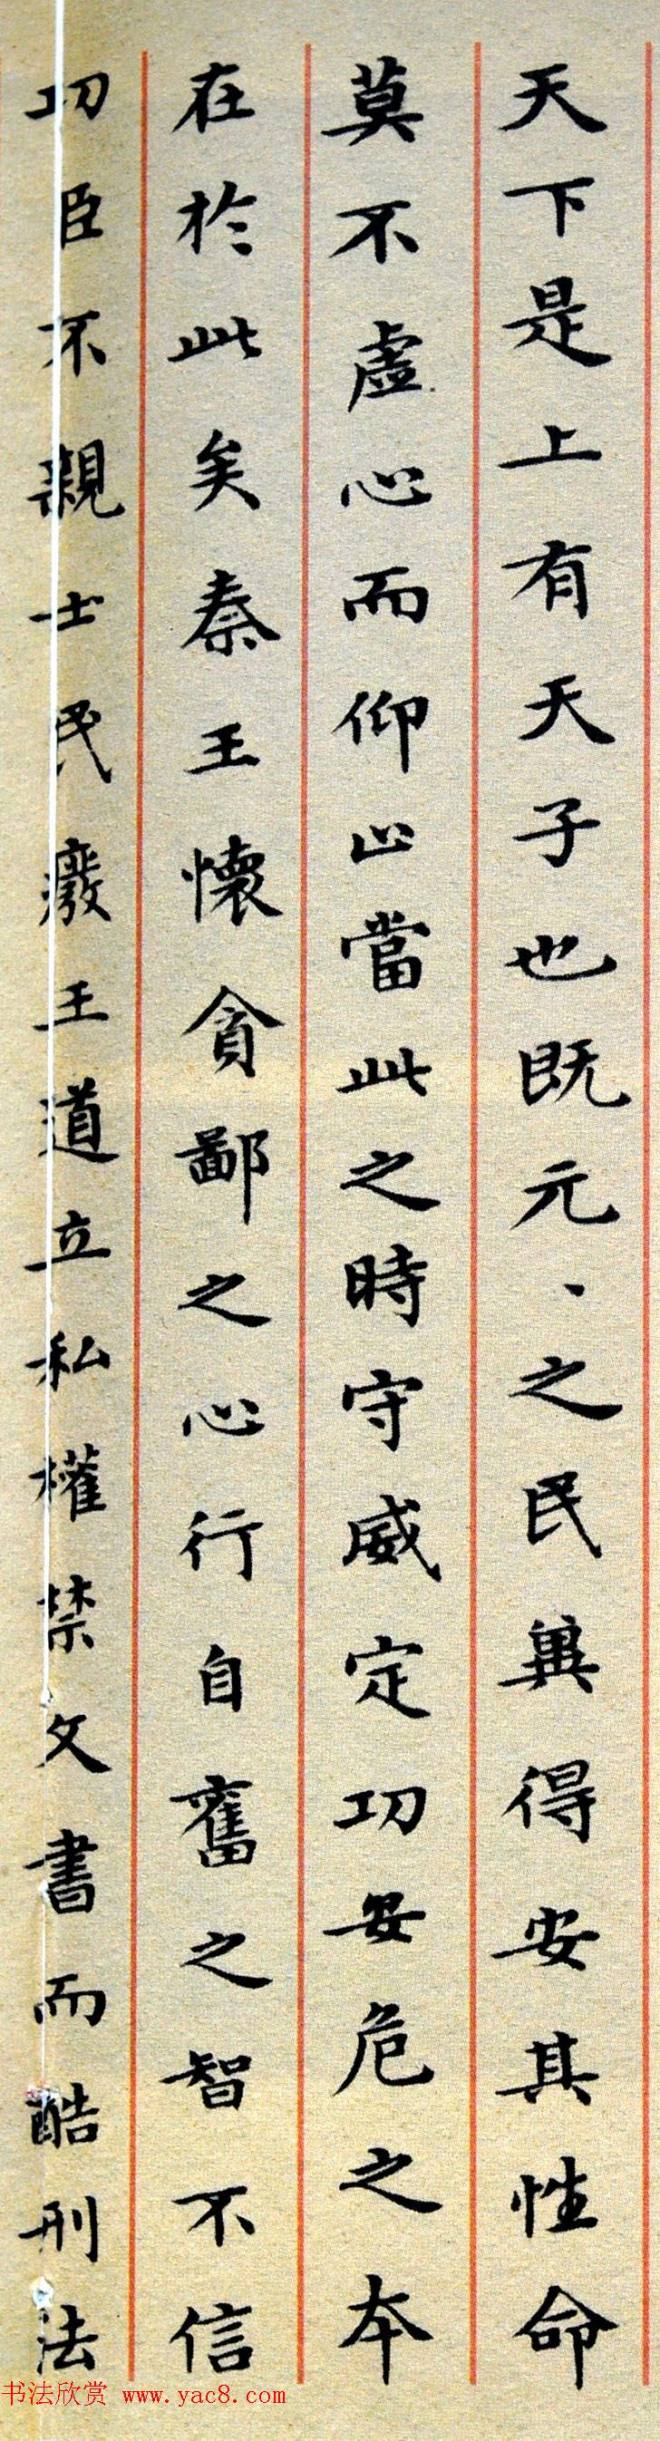 天下是上有天子也既元、之民冀得安其性命
莫不虛心而仰止當此之時守威定功安危之本
在於此矣秦王懷貪鄙之心行自奮之智不信
功臣不親士民廢王道立私權禁文書而酷刑法
书法欣赏 www.yac8.com